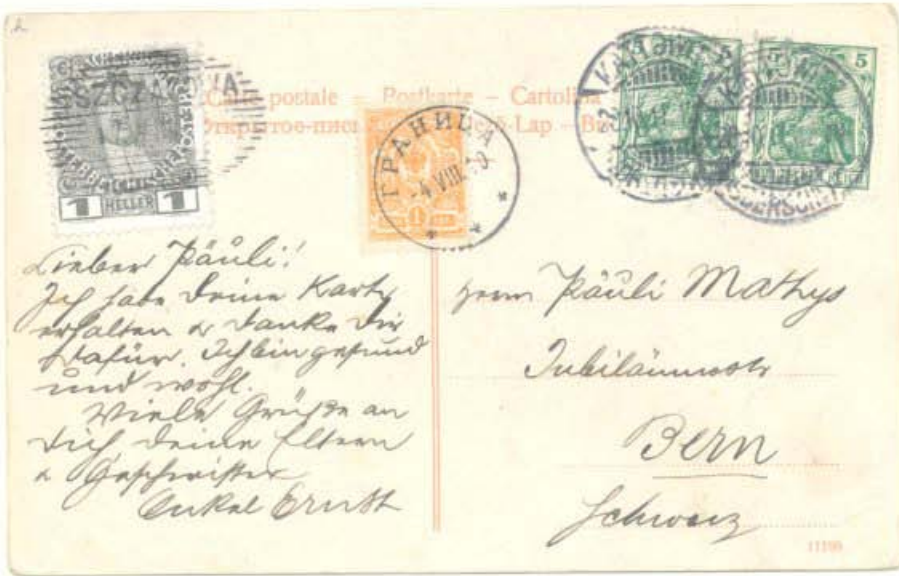 SZCZAKOWA
1 HELLER 1
Carte postale – Postkarte – Cartolina
Открытое
-Lap –
ГРАНИЦА
-4 VIII 10
1
5 5
KATTOWITZ
OBERSCHL
Lieber Päuli!
Ich habe deine Karte
erhalten & danke dir
dafür. Ich bin gesund
und wohl.
Viele Grüße an
dich deine Eltern
& Geschwister
Onkel Ernst
Herrn Päuli Mathys
Jubiläumsstr
Bern
Schweiz
11190